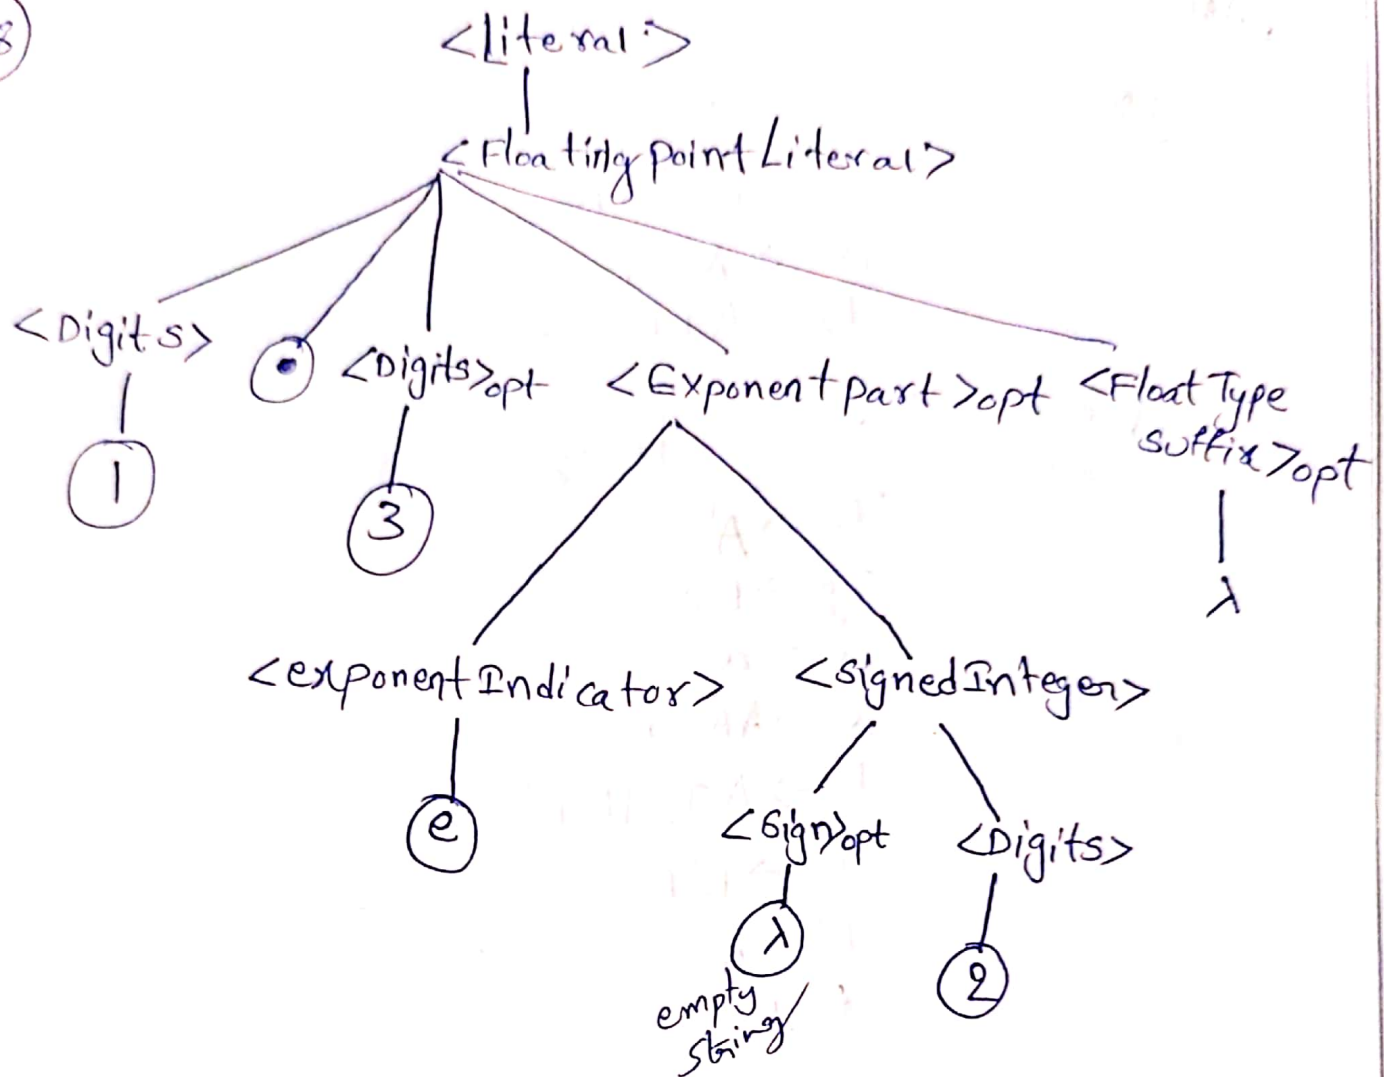 8
<Literal:>
<Floating point Literal>
<Digits>
.
<Digits>opt
<Exponent part>opt
<Float Type
suffix>opt
1
3
λ
<exponent Indicator>
<signed Integer>
e
<Sign>opt
<Digits>
λ
2
empty
string